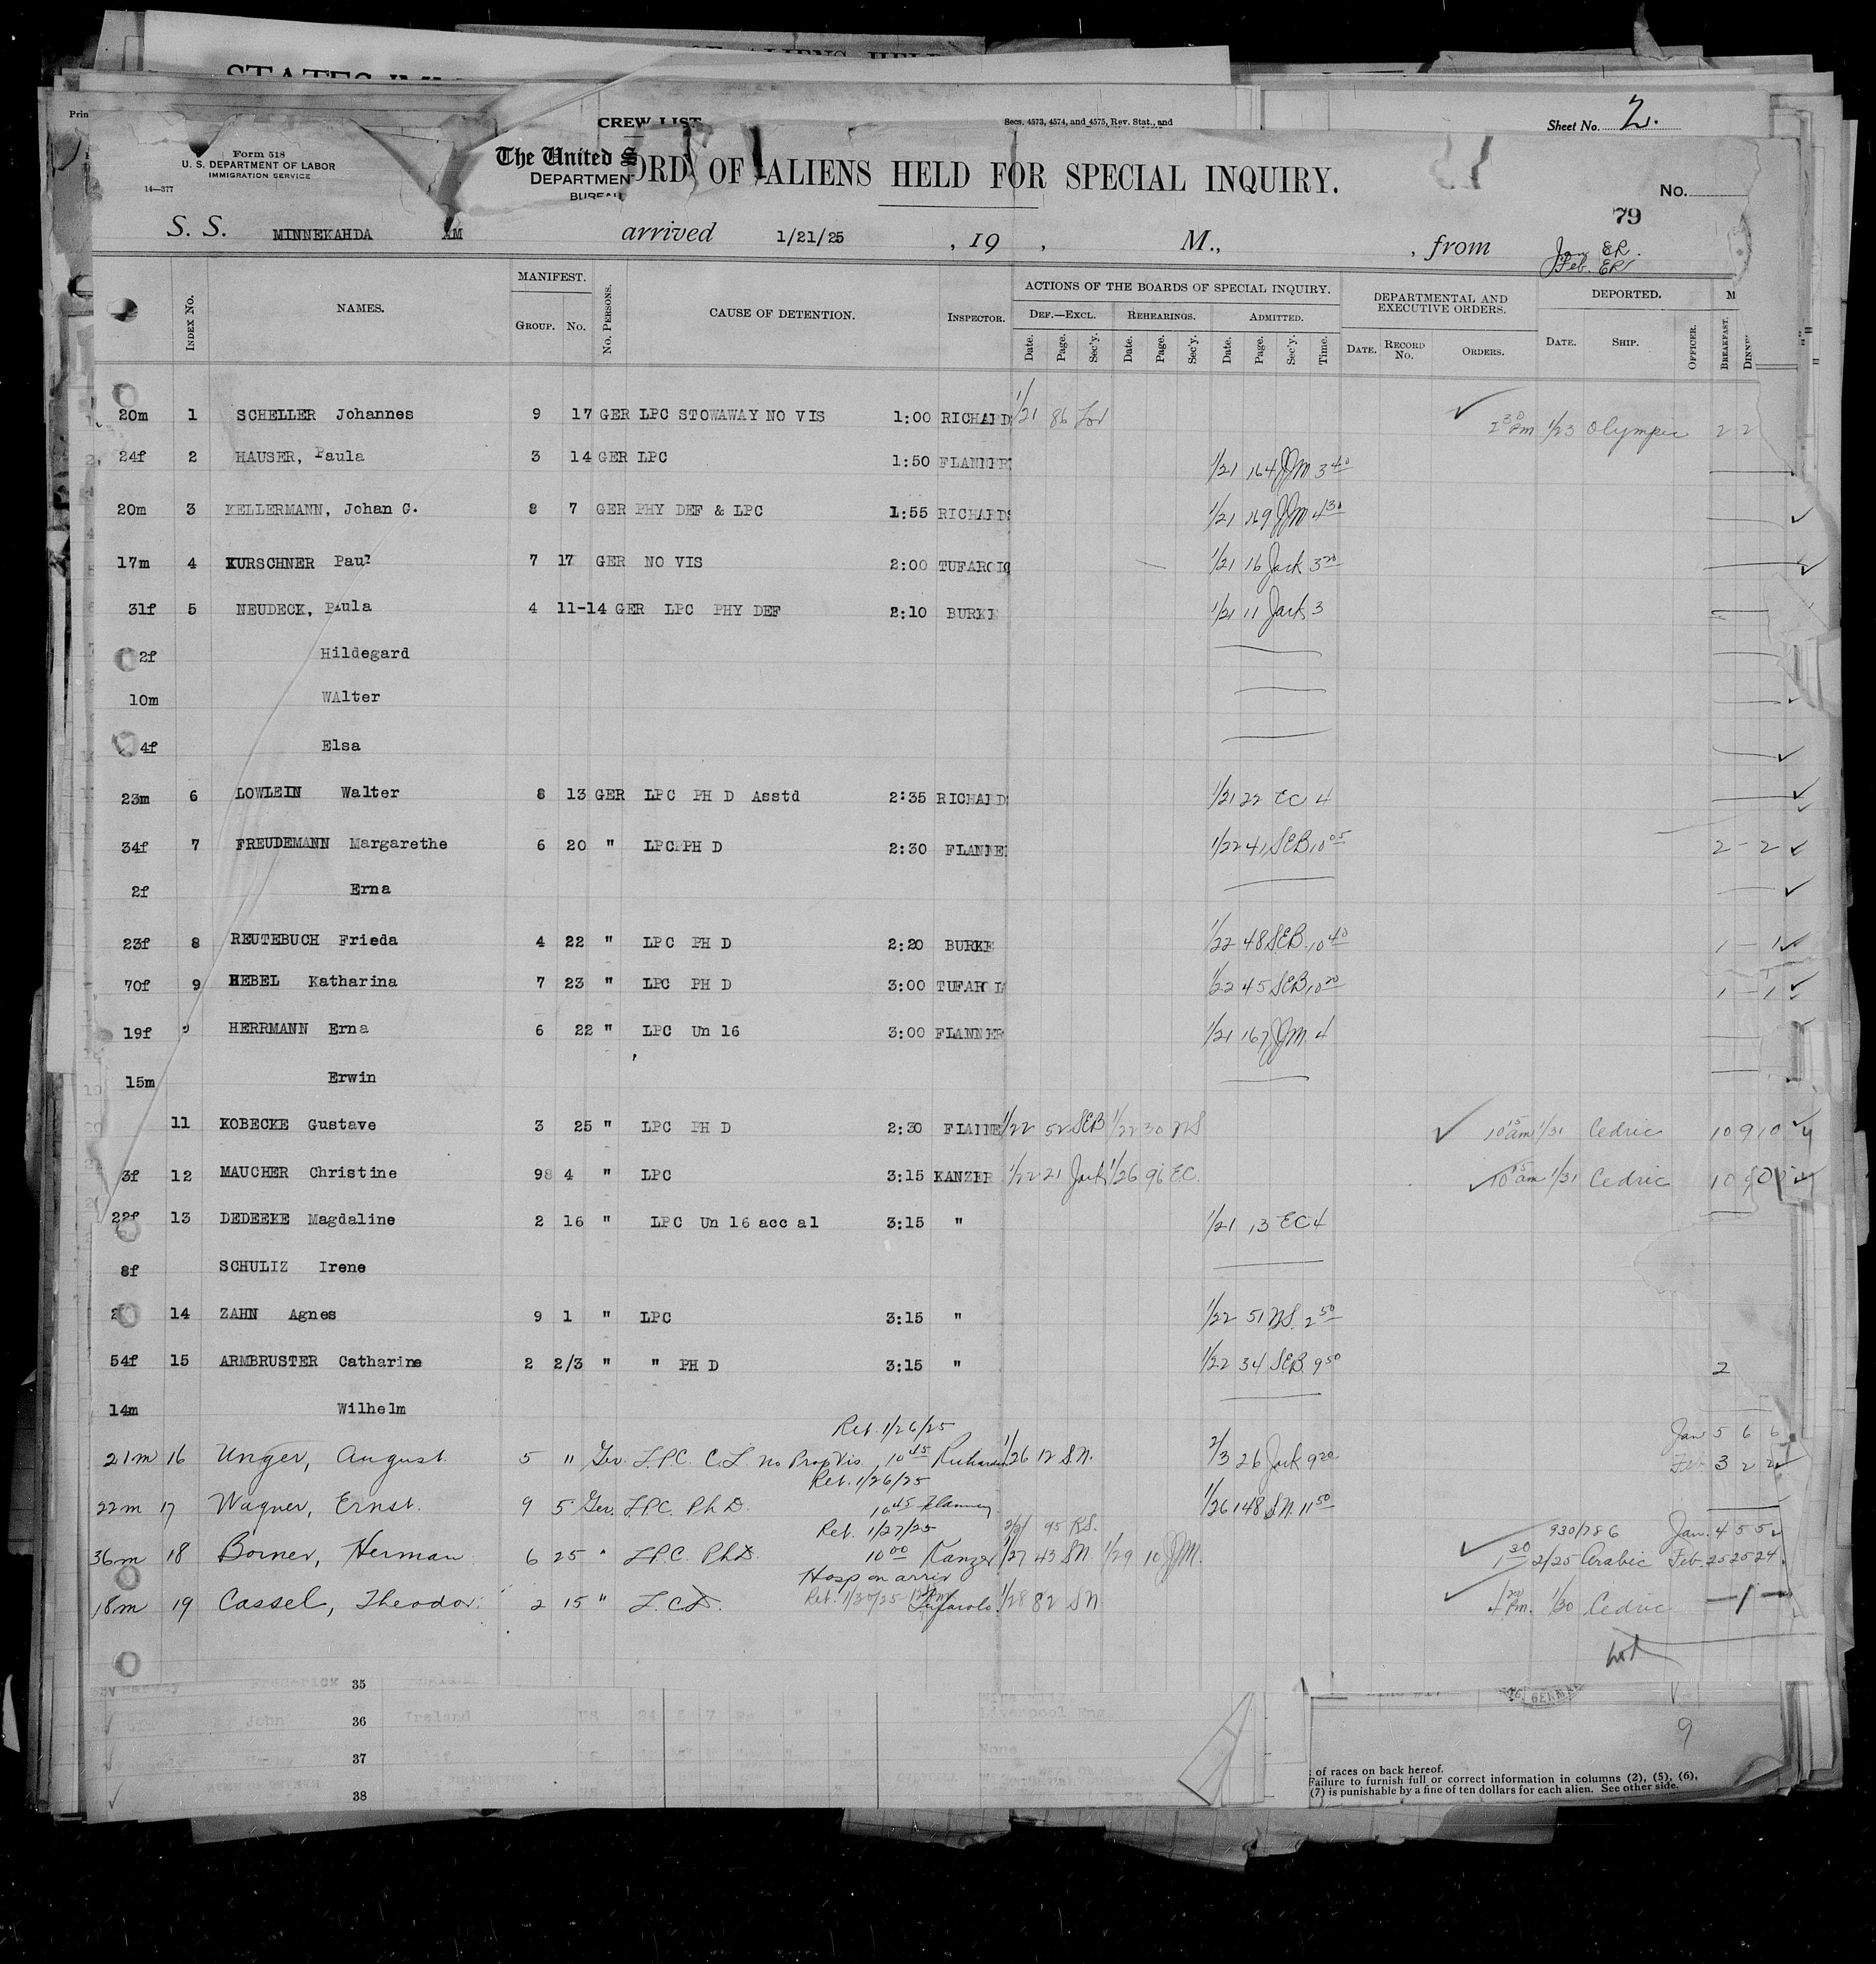 STATES IMM
OF ALIENS HELD
Prin
CREW LIST
Secs. 4573, 4574, and 4575, Rev. Stat., and
Sheet No. 2.
Form 518
U. S. DEPARTMENT OF LABOR
IMMIGRATION SERVICE
14—377
The United S
DEPARTMEN
BUREAU
ORD OF ALIENS HELD FOR SPECIAL INQUIRY.
No.
79
S. S. MINNEKAHDA AM arrived 1/21/25 , 19 , M., , from
Jan. ER.
Feb. ER
INDEX No. NAMES. MANIFEST. GROUP. No. No. PERSONS. CAUSE OF DETENTION. INSPECTOR.
ACTIONS OF THE BOARDS OF SPECIAL INQUIRY. DEF.—EXCL. REHEARINGS. ADMITTED.
Date. Page. Sec'y. Date. Page. Sec'y. Date. Page. Sec'y. Time.
DEPARTMENTAL AND EXECUTIVE ORDERS. DATE. RECORD No. ORDERS.
DEPORTED. DATE. SHIP. OFFICER. M BREAKFAST. DINN
20m 1 SCHELLER Johannes 9 17 GER LPC STOWAWAY NO VIS 1:00 RICHARD 1/21 86 Pm 1/23 Olympic 2 2
24f 2 HAUSER, Paula 3 14 GER LPC 1:50 FLANNER 1/21 164 JJM 3 40
20m 3 KELLERMANN, Johan C. 8 7 GER PHY DEF & LPC 1:55 RICHARDS 1/21 169 JJM 4 30
17m 4 KURSCHNER Paul 7 17 GER NO VIS 2:00 TUFAROL 1/21 16 Jack 3 20
31f 5 NEUDECK, Paula 4 11-14 GER LPC PHY DEF 2:10 BURKE 1/21 11 Jack 3
2f Hildegard
10m WAlter
4f Elsa
23m 6 LOWLEIN Walter 8 13 GER LPC PH D Asstd 2:35 RICHARDS 1/21 22 EC 4
34f 7 FREUDEMANN Margarethe 6 20 " LPC PH D 2:30 FLANNE 1/22 41 SEB 10 05 2 - 2
2f Erna
23f 8 REUTEBUCH Frieda 4 22 " LPC PH D 2:20 BURKE 1/22 48 SEB 10 40 1 - 1
70f 9 HEBEL Katharina 7 23 " LPC PH D 3:00 TUFAROL 1/22 45 SEB 10 20 1 - 1
19f HERRMANN Erna 6 22 " LPC Un 16 3:00 FLANNER 1/21 167 JJM. 4
15m Erwin
11 KOBECKE Gustave 3 25 " LPC PH D 2:30 FLANNE 1/22 52 SEB 1/22 30 NS 10 15 am 1/31 Cedric 10 9 10
3f 12 MAUCHER Christine 98 4 " LPC 3:15 KANZER 1/22 21 Jack 1/26 96 E.C. 10 15 am 1/31 Cedric 10
22f 13 DEDEEKE Magdaline 2 16 " LPC Un 16 acc al 3:15 " 1/21 13 EC 4
8f SCHULIZ Irene
14 ZAHN Agnes 9 1 " LPC 3:15 " 1/22 51 NS. 2 50
54f 15 ARMBRUSTER Catharine 2 2/3 " " PH D 3:15 " 1/22 34 SEB. 9 50 2
14m Wilhelm
Ret. 1/26/25
21m 16 Unger, August 5 " Ger L.P.C. C.L. no Prop Vis. 10 45 Richards 1/26 12 S.N. 2/3 26 Jack 9 20 Jan 5 6 6
Feb. 3 2 2
Ret. 1/26/25
22m 17 Wagner, Ernst. 9 5 Ger. L.P.C. Ph.D. 10 45 Flannery 1/26 148 S.N. 11 50
Ret. 1/27/25 95 R.S. 930/786 Jan. 4 5 5
36m 18 Borner, Herman 6 25 " L.P.C. Ph.D. 10 00 Kanzer 1/27 43 S.N. 1/29 10 JJM. 1 30 2/25 Arabic Feb. 25 25 24
Hosp on arriv
18m 19 Cassel, Theodor 2 15 " L.C.D. Ret. 1/30/25 Tufarolo 1/28 82 S N Pm. 1/30 Cedric — 1 —
Frederick 35
John 36 Ireland US Liverpool Eng
37 None
38
GERMAN
9
of races on back hereof.
Failure to furnish full or correct information in columns (2), (5), (6),
(7) is punishable by a fine of ten dollars for each alien. See other side.